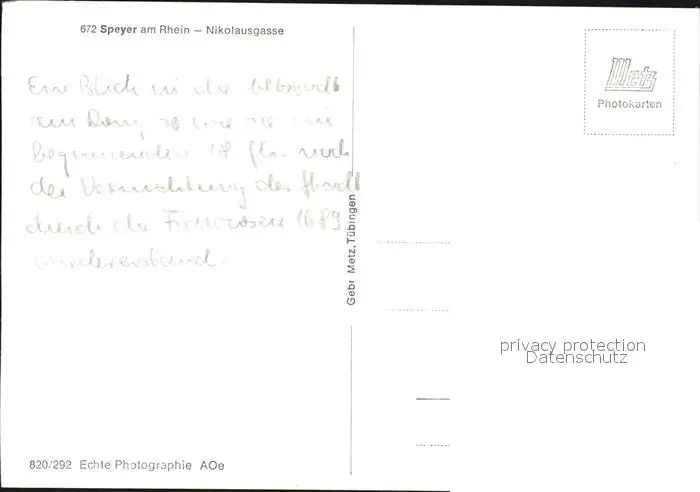 672 Speyer am Rhein — Nikolausgasse
Metz
Photokarten
Ein Blick in die Altstadt
am Dom, so wie sie im
beginnenden 18. Jh. nach
der Vernichtung der Stadt
durch die Franzosen 1689
wiedererstand.
Gebr Metz, Tübingen
privacy protection
Datenschutz
820/292 Echte Photographie AOe